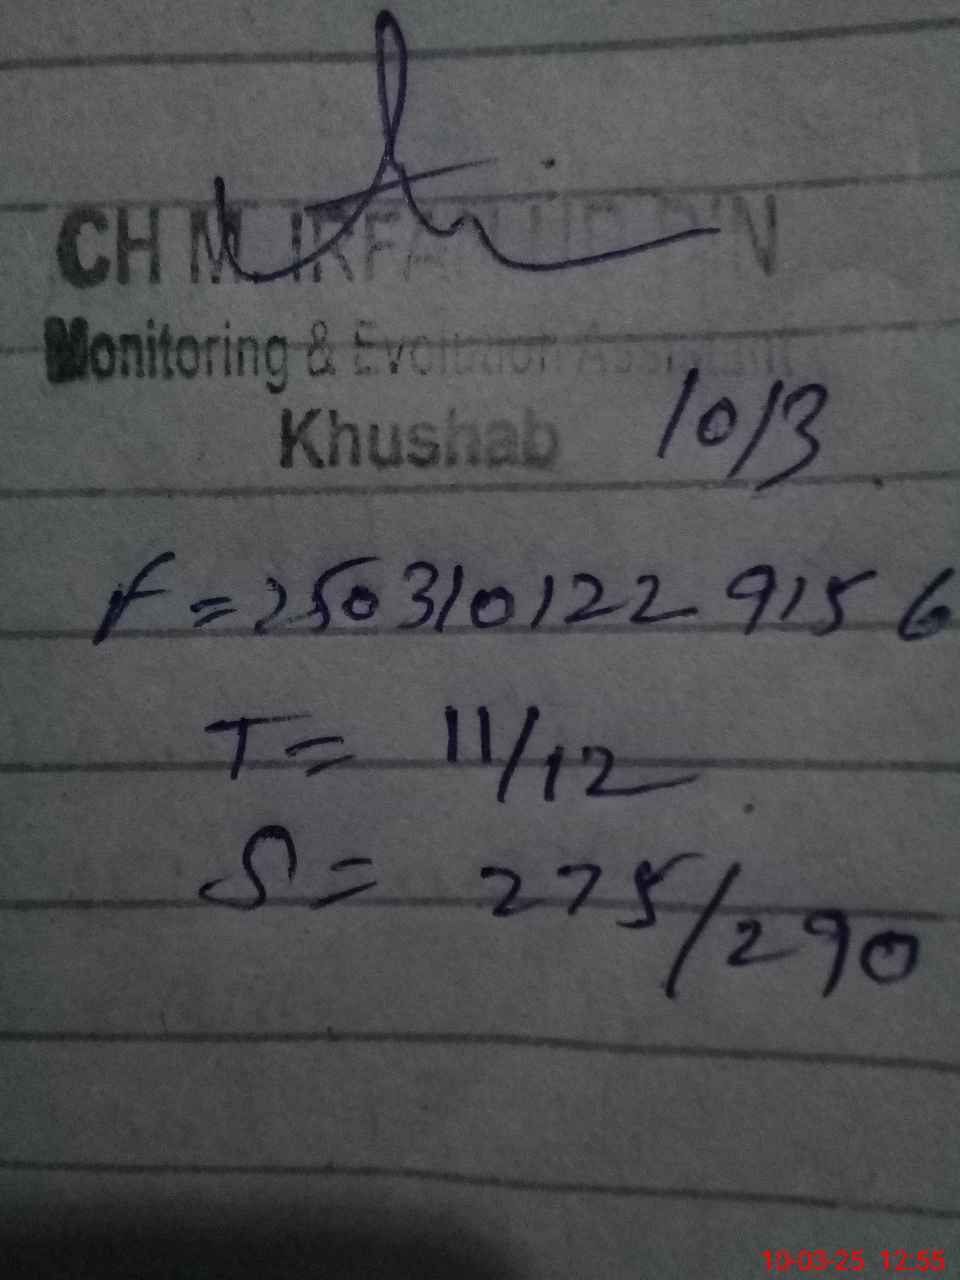 CH M. IRFAN UD DIN
Monitoring & Evolution Assistant
Khushab
10/3
F = 250310122 9156
T = 11/12
S = 275/290
10-03-25 12:55